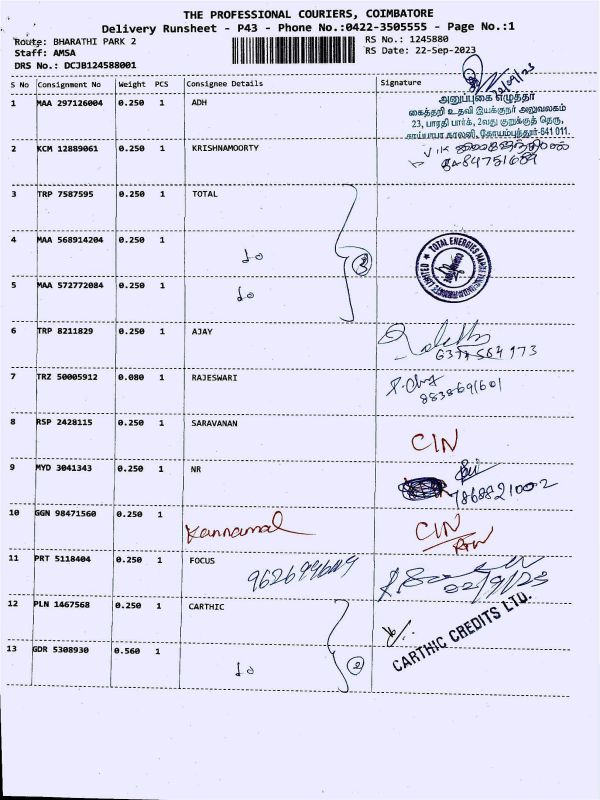 THE PROFESSIONAL COURIERS, COIMBATORE
Delivery Runsheet - P43 - Phone No.:0422-3505555 - Page No.:1
Route: BHARATHI PARK 2 RS No.: 1245880
Staff: AMSA RS Date: 22-Sep-2023
DRS No.: DCJB124588001
S No Consignment No Weight PCS Consignee Details Signature
22/09/23
1 MAA 297126004 0.250 1 ADH
அனுப்புகை எழுத்தர்
கைத்தறி உதவி இயக்குநர் அலுவலகம்
23, பாரதி பார்க், 2வது குறுக்குத் தெரு,
சாய்பாபா காலனி, கோயம்புத்தூர்-641 011.
2 KCM 12889061 0.250 1 KRISHNAMOORTY
3 TRP 7587595 0.250 1 TOTAL
4 MAA 568914204 0.250 1 do
TOTAL ENERGIES LIMITED
5 MAA 572772084 0.250 1 do
6 TRP 8211829 0.250 1 AJAY
7 TRZ 50005912 0.080 1 RAJESWARI
8838691601
8 RSP 2428115 0.250 1 SARAVANAN CIN
9 MYD 3041343 0.250 1 NR
7868821002
10 GGN 98471560 0.250 1 Kannamal CIN
11 PRT 5118404 0.250 1 FOCUS
22/9/23
12 PLN 1467568 0.250 1 CARTHIC
CARTHIC CREDITS LTD.
13 GDR 5308930 0.560 1 do 2